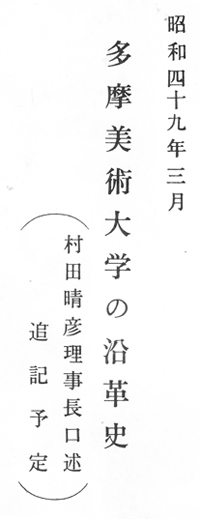 昭和四十九年三月
多摩美術大学の沿革史
（村田晴彦理事長口述
追記予定）